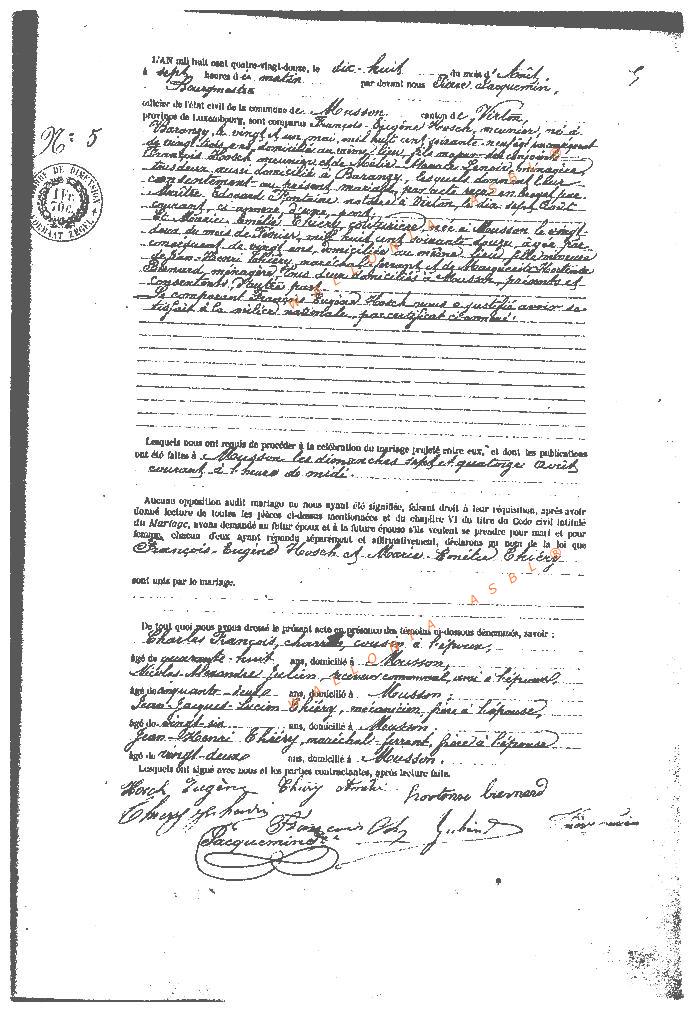 N° 5
L'AN mil huit cent quatre-vingt-douze, le dix-huit du mois d'Août
à sept heures d u matin par devant nous Jacquemin,
Bourgmestre
officier de l'état civil de la commune de Musson canton de Virton,
province de Luxembourg, sont comparus François-Eugène Hosch, meunier, né à
Baranzy, le vingt et un mai, mil huit cent soixante neuf,
de vingt trois ans, domicilié au même lieu, fils majeur des conjoints
François Hosch meunier et de ménagère,
tous deux aussi domiciliés à Baranzy, lesquels donnent leur
consentement au présent mariage, par acte reçu en brevet par
Maître Edouard Fontaine notaire à Virton, le dix sept août
courant, ci annexé, d'une part,
Et Marie Amélie Thiéry, couturière, née à Musson le vingt-
deux du mois de Février, mil huit cent soixante douze, âgée par
conséquent de vingt ans, domiciliée au même lieu, fille mineure
de Jean-Henri Thiéry, maréchal-ferrant et de Marguerite Hortense
Bernard, ménagère, tous deux domiciliés à Musson, présents et
consentants, d'autre part.
Le comparent François Eugène Hosch nous a justifié avoir sa-
tisfait à la milice nationale, par certificat ci annexé.
Lesquels nous ont requis de procéder à la célébration du mariage projeté entre eux, et dont les publications
ont été faites à Musson les dimanches sept et quatorze août
courant à l'heure de midi.
Aucune opposition audit mariage ne nous ayant été signifiée, faisant droit à leur réquisition, après avoir
donné lecture de toutes les pièces ci-dessus mentionnées et du chapitre VI du titre du Code civil intitulé
du Mariage, avons demandé au futur époux et à la future épouse s'ils veulent se prendre pour mari et pour
femme, chacun d'eux ayant répondu séparément et affirmativement, déclarons au nom de la loi que
François-Eugène Hosch et Marie-Amélie Thiéry
sont unis par le mariage.
De tout quoi nous avons dressé le présent acte en présence des témoins ci-dessous dénommés, savoir :
Charles François, cousin à l'époux,
âgé de quarante-huit ans, domicilié à Musson,
Nicolas Alexandre Julien, receveur communal, ami à l'époux,
âgé de cinquante-deux ans, domicilié à Musson,
Jean-Jacques-Lucien Thiéry, mécanicien, frère à l'épouse,
âgé de vingt-six ans, domicilié à Musson,
Jean-Henri Thiéry, maréchal-ferrant, frère à l'épouse
âgé de vingt-deux ans, domicilié à Musson.
Lesquels ont signé avec nous et les parties contractantes, après lecture faite.
Hosch Eugène Thiéry Amélie Hortense Bernard
Thiéry François
Jacquemin
WALLONIA ASBL®
WALLONIA ASBL®